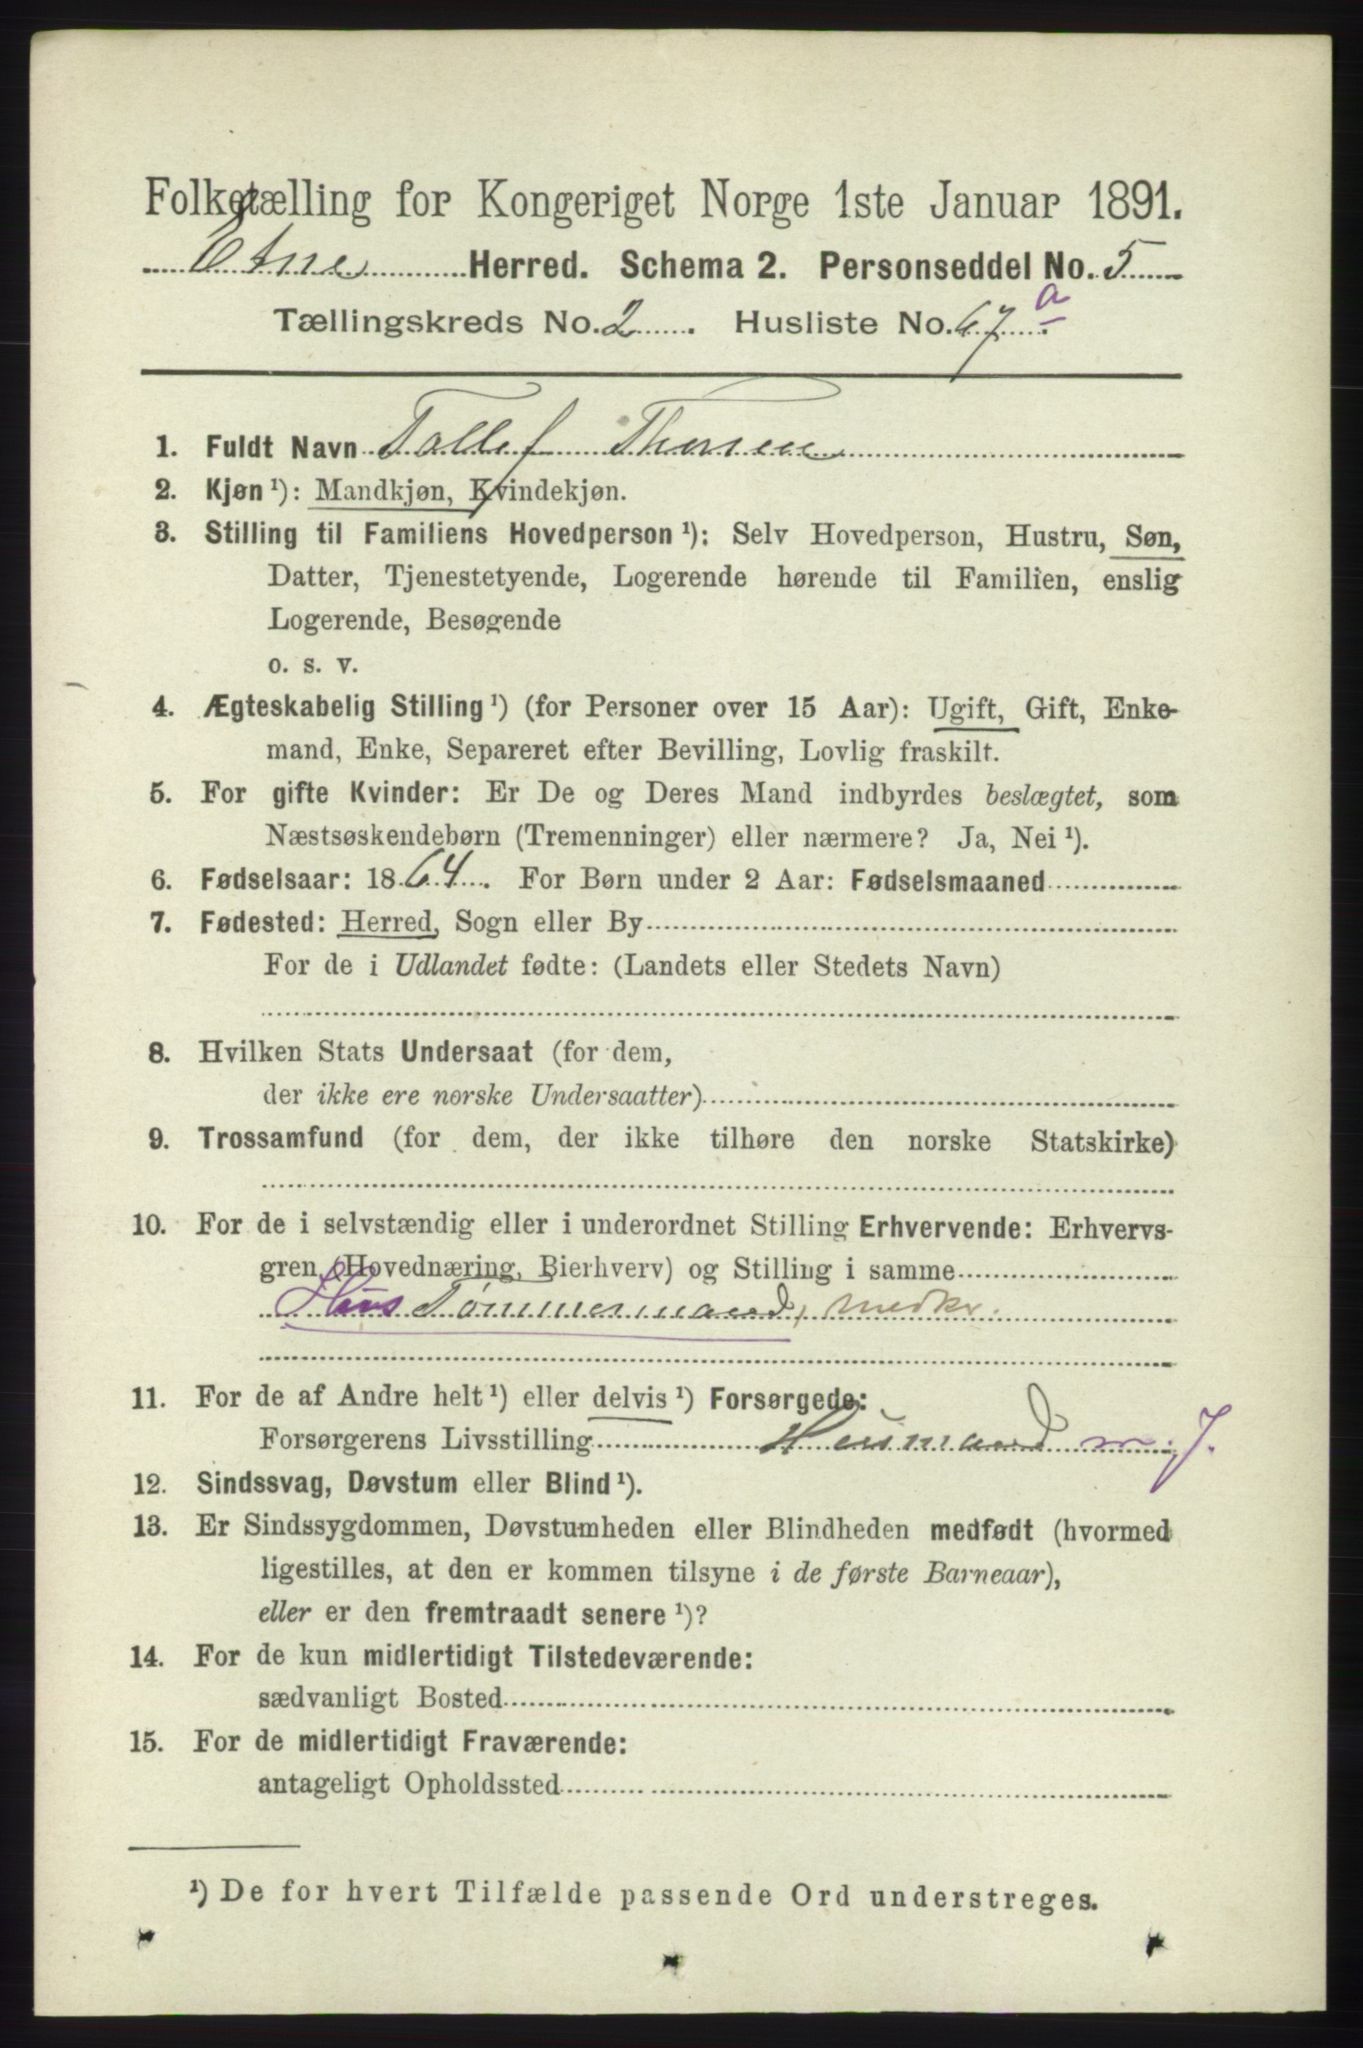 Folketælling for Kongeriget Norge 1ste Januar 1891.
Etne Herred. Schema 2. Personseddel No. 5
Tællingskreds No. 2. Husliste No. 67 a.
1. Fuldt Navn Tollef Thorsen
2. Kjøn ¹): Mandkjøn, Kvindekjøn.
3. Stilling til Familiens Hovedperson ¹): Selv Hovedperson, Hustru, Søn,
Datter, Tjenestetyende, Logerende hørende til Familien, enslig
Logerende, Besøgende
o. s. v.
4. Ægteskabelig Stilling ¹) (for Personer over 15 Aar): Ugift, Gift, Enke-
mand, Enke, Separeret efter Bevilling, Lovlig fraskilt.
5. For gifte Kvinder: Er De og Deres Mand indbyrdes beslægtet, som
Næstsøskendebørn (Tremenninger) eller nærmere? Ja, Nei ¹).
6. Fødselsaar: 1864. For Børn under 2 Aar: Fødselsmaaned
7. Fødested: Herred, Sogn eller By
For de i Udlandet fødte: (Landets eller Stedets Navn)
8. Hvilken Stats Undersaat (for dem,
der ikke ere norske Undersaatter)
9. Trossamfund (for dem, der ikke tilhøre den norske Statskirke)
10. For de i selvstændig eller i underordnet Stilling Erhvervende: Erhvervs-
gren (Hovednæring, Bierhverv) og Stilling i samme
Hus Tømmermand, medhr.
11. For de af Andre helt ¹) eller delvis ¹) Forsørgede:
Forsørgerens Livsstilling Husmand m. J.
12. Sindssvag, Døvstum eller Blind ¹).
13. Er Sindssygdommen, Døvstumheden eller Blindheden medfødt (hvormed
ligestilles, at den er kommen tilsyne i de første Barneaar),
eller er den fremtraadt senere ¹)?
14. For de kun midlertidigt Tilstedeværende:
sædvanligt Bosted
15. For de midlertidigt Fraværende:
antageligt Opholdssted
¹) De for hvert Tilfælde passende Ord understreges.